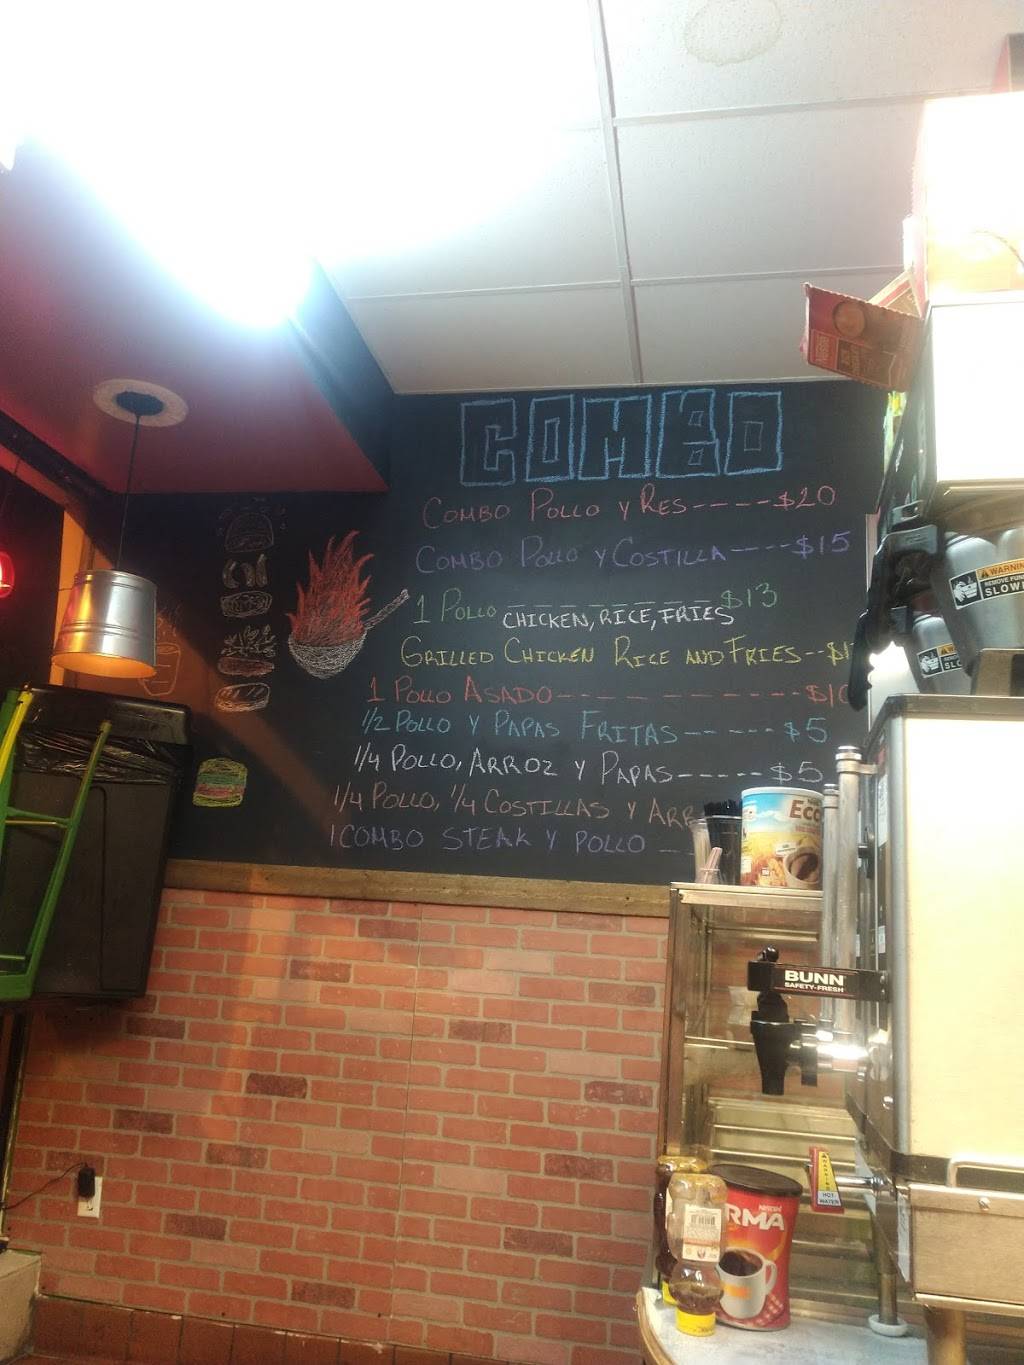 COMBO
COMBO POLLO Y RES----$20
COMBO POLLO Y COSTILLA----$15
1 POLLO _ _ _ _ _ _ _ _ $13
CHICKEN, RICE, FRIES
GRILLED CHICKEN RICE AND FRIES--$1
1 POLLO ASADO------------$10
1/2 POLLO Y PAPAS FRITAS------$5
1/4 POLLO, ARROZ Y PAPAS-----$5
1/4 POLLO, 1/4 COSTILLAS Y ARR
1 COMBO STEAK Y POLLO _ _
ECO
WARNING
SLOW
BUNN
SAFETY-FRESH
HOT
WATER
RMA